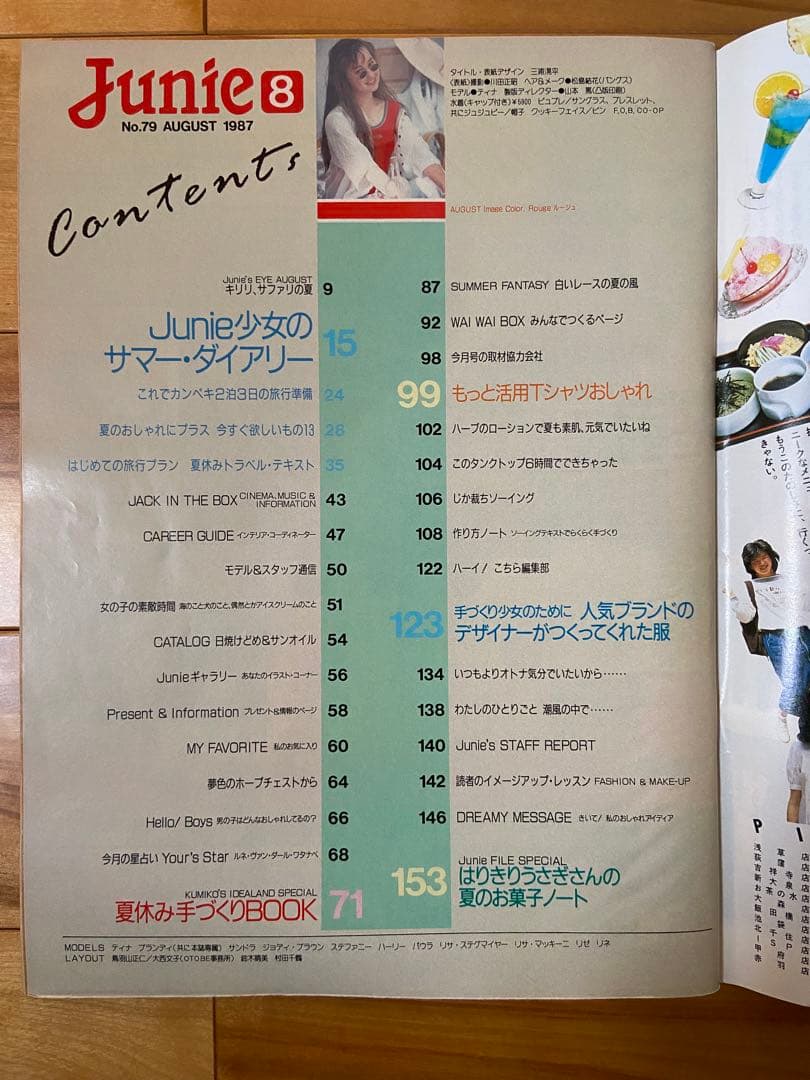 Junie 8
No.79 AUGUST 1987
Contents
タイトル・表紙デザイン 三浦滉平
〈表紙〉撮影●川田正昭 ヘア&メーク●松島結花(バングス)
モデル●ティナ 製版ディレクター●山本 篤(凸版印刷)
水着(キャップ付き)¥5900 ピュプレ/サングラス、ブレスレット、
共にジュジュビー/帽子 ワッキーフェイス/ピン F,O,B,CO-OP
AUGUST Image Color, Rouge ルージュ
Junie's EYE AUGUST
キリリ、サファリの夏 9
Junie少女の
サマー・ダイアリー 15
これでカンペキ2泊3日の旅行準備 24
夏のおしゃれにプラス 今すぐ欲しいもの13 28
はじめての旅行プラン 夏休みトラベル・テキスト 35
JACK IN THE BOX CINEMA, MUSIC & INFORMATION 43
CAREER GUIDE インテリア・コーディネーター 47
モデル&スタッフ通信 50
女の子の素敵時間 海のこと犬のこと、偶然とかアイスクリームのこと 51
CATALOG 日焼けどめ&サンオイル 54
Junieギャラリー あなたのイラスト・コーナー 56
Present & Information プレゼント&情報のページ 58
MY FAVORITE 私のお気に入り 60
夢色のホープチェストから 64
Hello! Boys 男の子はどんなおしゃれしてるの? 66
今月の星占い Your's Star ルネ・ヴァン・ダール・ワタナベ 68
KUMIKO'S IDEALAND SPECIAL
夏休み手づくりBOOK 71
87 SUMMER FANTASY 白いレースの夏の風
92 WAI WAI BOX みんなでつくるページ
98 今月号の取材協力会社
99 もっと活用Tシャツおしゃれ
102 ハーブのローションで夏も素肌、元気でいたいね
104 このタンクトップ6時間でできちゃった
106 じか裁ちソーイング
108 作り方ノート ソーイングテキストでらくらく手づくり
122 ハーイ! こちら編集部
123 手づくり少女のために 人気ブランドの
デザイナーがつくってくれた服
134 いつもよりオトナ気分でいたいから……
138 わたしのひとりごと 潮風の中で……
140 Junie's STAFF REPORT
142 読者のイメージアップ・レッスン FASHION & MAKE-UP
146 DREAMY MESSAGE きいて! 私のおしゃれアイディア
Junie FILE SPECIAL
153 はりきりうさぎさんの
夏のお菓子ノート
MODELS ティナ ブランティ(共に本誌専属) サンドラ ジョディ・ブラウン ステファニー ハーリー パウラ リサ・ステグマイヤー リサ・マッキーニ リゼ リネ
LAYOUT 鳥羽山正仁/大西文子(OTOBE事務所) 鈴木晴美 村田千鶴
ニークなメニ
きゃない。
P I